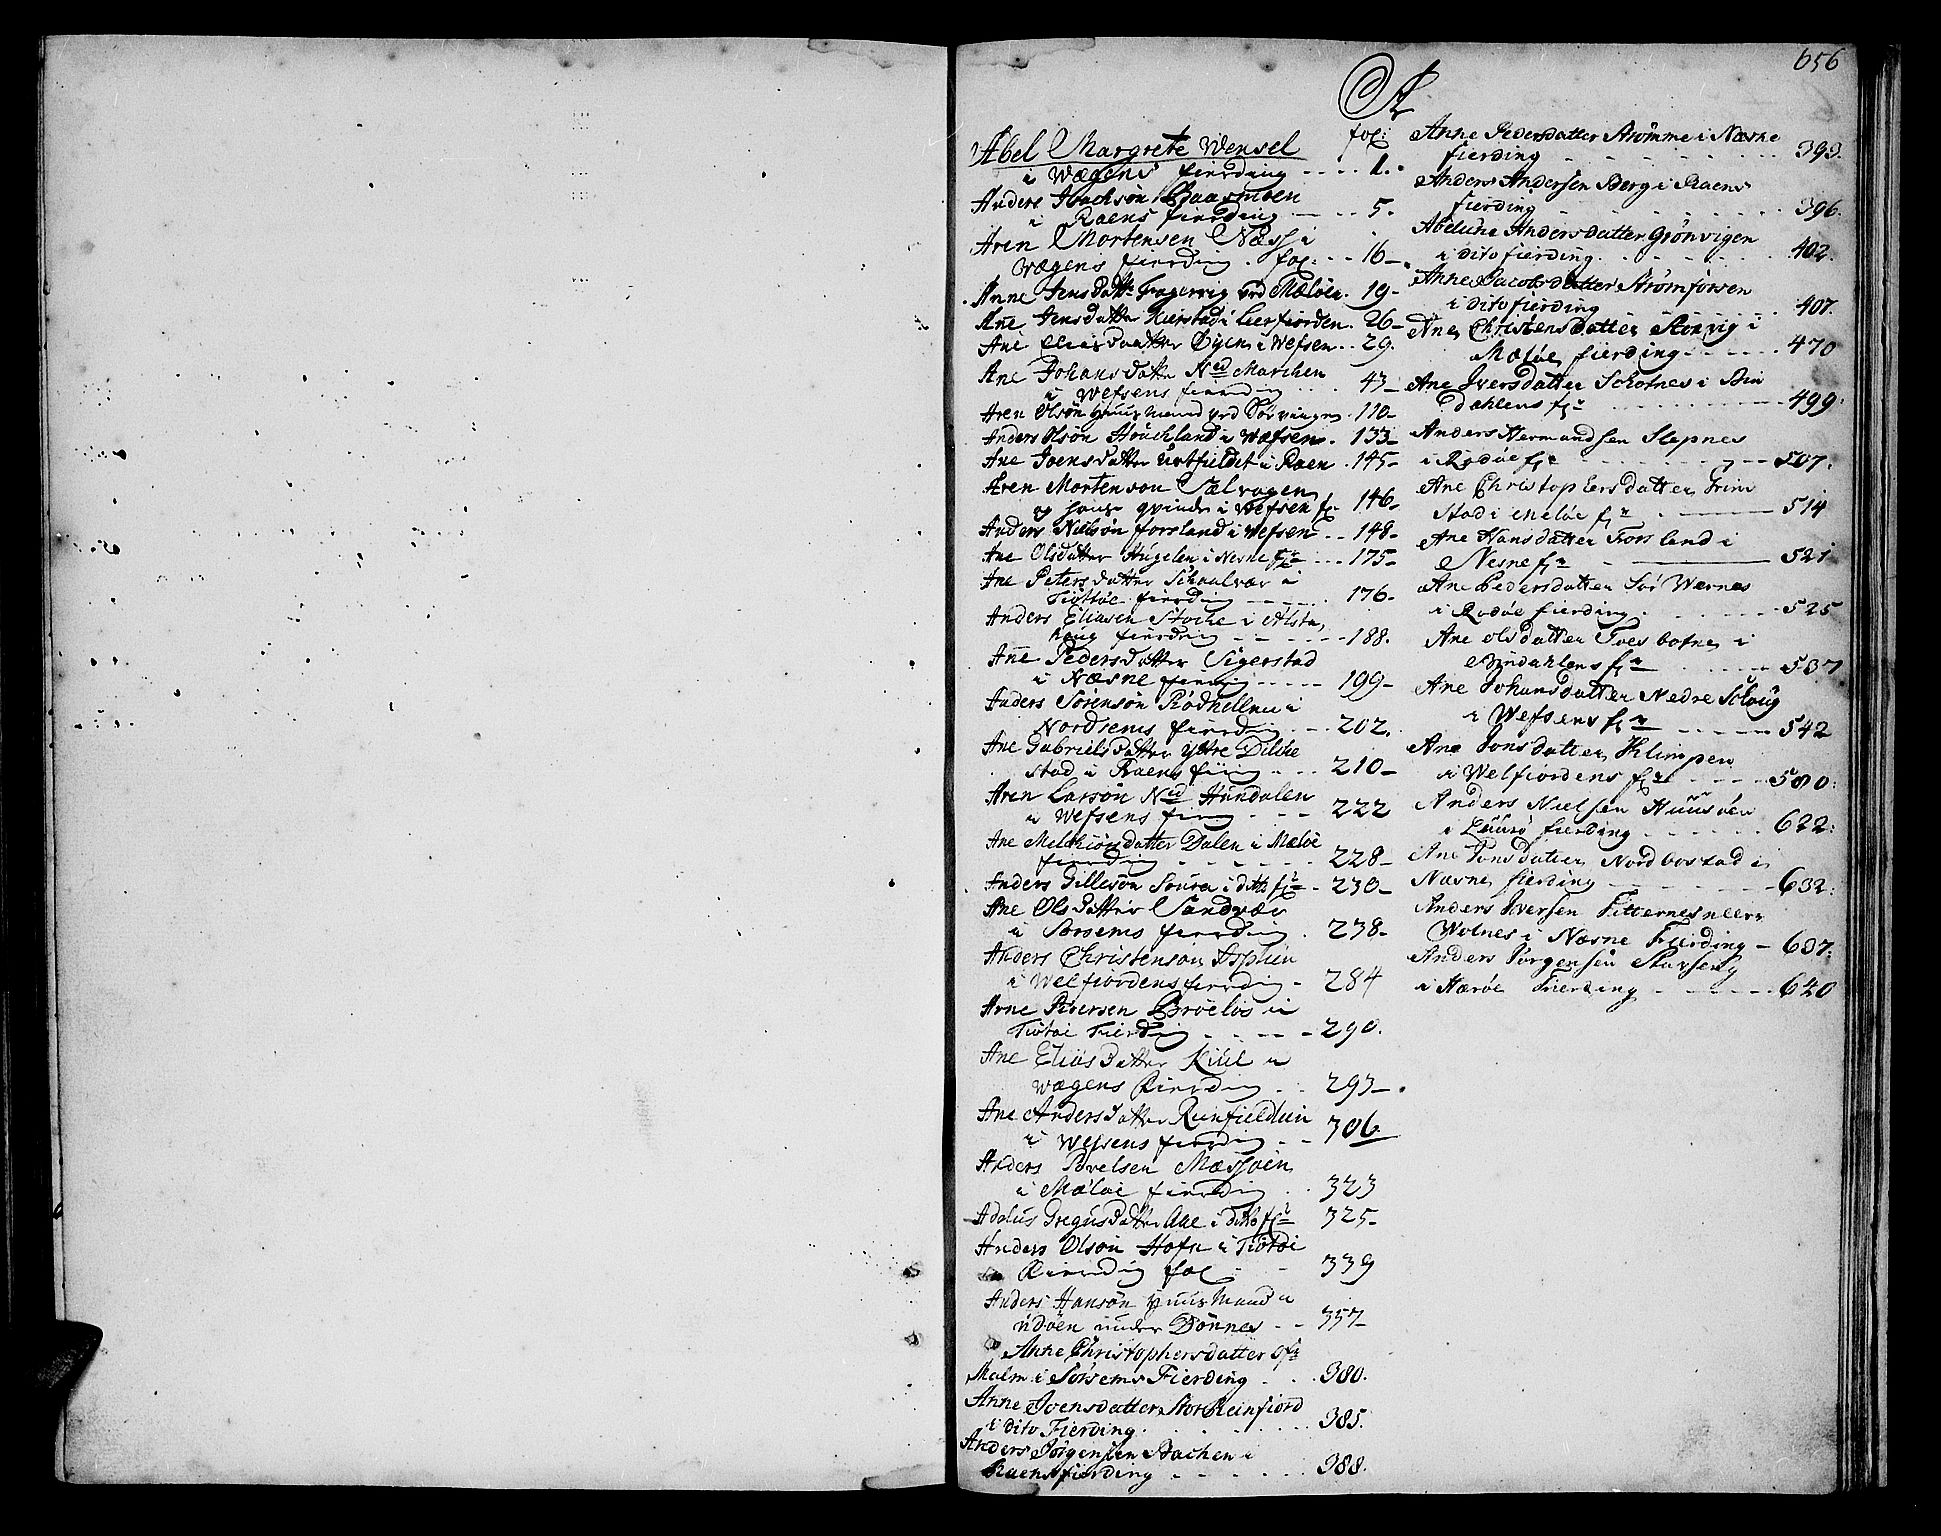 656
A
fol:
Abel Margrete Wensel
i Wægens fierding - - - - 1.
Anders Isachsøn Baasmoen
i Raens fierding - - - 5.
Aren Mortensen Næss i
Wægens fierding . fol: - - 16-
Anne Jensdatter Fagervig ved Meløe. 19-
Ane Jensdatter i Leerfiorden. 26-
Ane Eliasdaatter Øyen i Wefsen - - 29.
Ane Johansdatter Ned Marchen
i Wefsens fierding 43-
Aren Olsøn huusmand ved 110-
Anders Olsøn i Wæfsen. 133-
Ane Joensdatter Urtfieldet i Raen . 145-
Aren Mortenson Sælvogen
og hans qvinde i Wefsen f. 146-
Anders Nielsøn forsland i Wefsen - - 148-
Ane Olsdatter Hugelen i Nesne fr - - - 175-
Ane Petersdatter Schaalvær i
Tiøttøe fierding - - - - - 176-
Anders Eliasen Stoche i Alsta
haug fierdring - - - - - 188.
Ane Pedersdatter Sigerstad
i Næsne fierdng - - - - - 199-
Anders Sørensøn Rødhellen i
Nordsems fierding - - - 202.
Ane Gabrielsdatter ytre Dilche
stad i Raens - - - 210-
Aren Larsøn Ned Hundalen
i Wefsens - - - 222
Ane Melchiorsdatter Dalen i Meløe
fierding - - - - - 228-
Anders Gillesøn Soura i ditto fr - 230-
Ane Olsdatter Sandvær
i Sørsems fierding . 238-
Anders Christensøn
i Welfiordens fierdng - 284
Arne Broeløs i
Tiøtøe Fierding - - - - - 290.
Ane Eliasdatter Kiil i
Wægens Fierding - - 293-
Ane Andersdatter Reinfieldlien
i Wefsens fierdig - - 306
Anders Povelsen Mæssøen
i Meløe fierding - - 323
Gregusdatter Aae i ditto fr 325-
Anders Olsøn Hofn i Tiøtøe
Fierding fol - - 339
Anders Hansøn huusmand i
under Dønnes - - 357-
Anne Christophersdatter
Malm i Sørsems Fierding - - - 380.
Anne Joensdatter Stor Reinfiord
i dito Fierding. - - - - - 385.
Anders Jørgensen Bachen i
Raens fierding - - - - - 388.
Anne Pedersdatter Strømme i Næsne
fierding - - - - - 393.
Anders Andersen Berg i Raens
fierding - - - - - 396.
Abelune Andersdatter Grønvigen
i dito fierding. - - - - 402.
Anne Jacobsdatter Strømforsen
i dito fierding - - - - 407.
Ane Christensdatter Storvig i
Meløe fierding - - - - - 470
Ane Iversdatter Schotnes i Bin
dahlens fr - - - - - 499.
Anders Hermandsen Slepnes
i Rødøe fr - - - - - 507.
Ane Christophersdatter Grim
stad i Meløe fr - - 514
Ane Hansdatter Forsland i
Nesne fr - - 521
Ane Pedersdatter Sør Wernes
i Rødøe fierding. - - - - 525
Ane Olsdatter Toesbotnen i
Bindahlens fr - - - - 537
Ane Johansdatter Nedre
i Wefsens fr - - - - - 542
Ane Jonsdatter Klimpen
i Welfiordens fr - - - - 580.
Anders Nielsen Huusøen
i Luurø fierding - - - - - 622.
Ane Jonsdatter Nordbostad i
Næsne fierding - - - - - 632.
Anders Iversen
i Næsne Fierding - 637.
Anders Jørgensen
i Herøe Fierding - - - - - 640